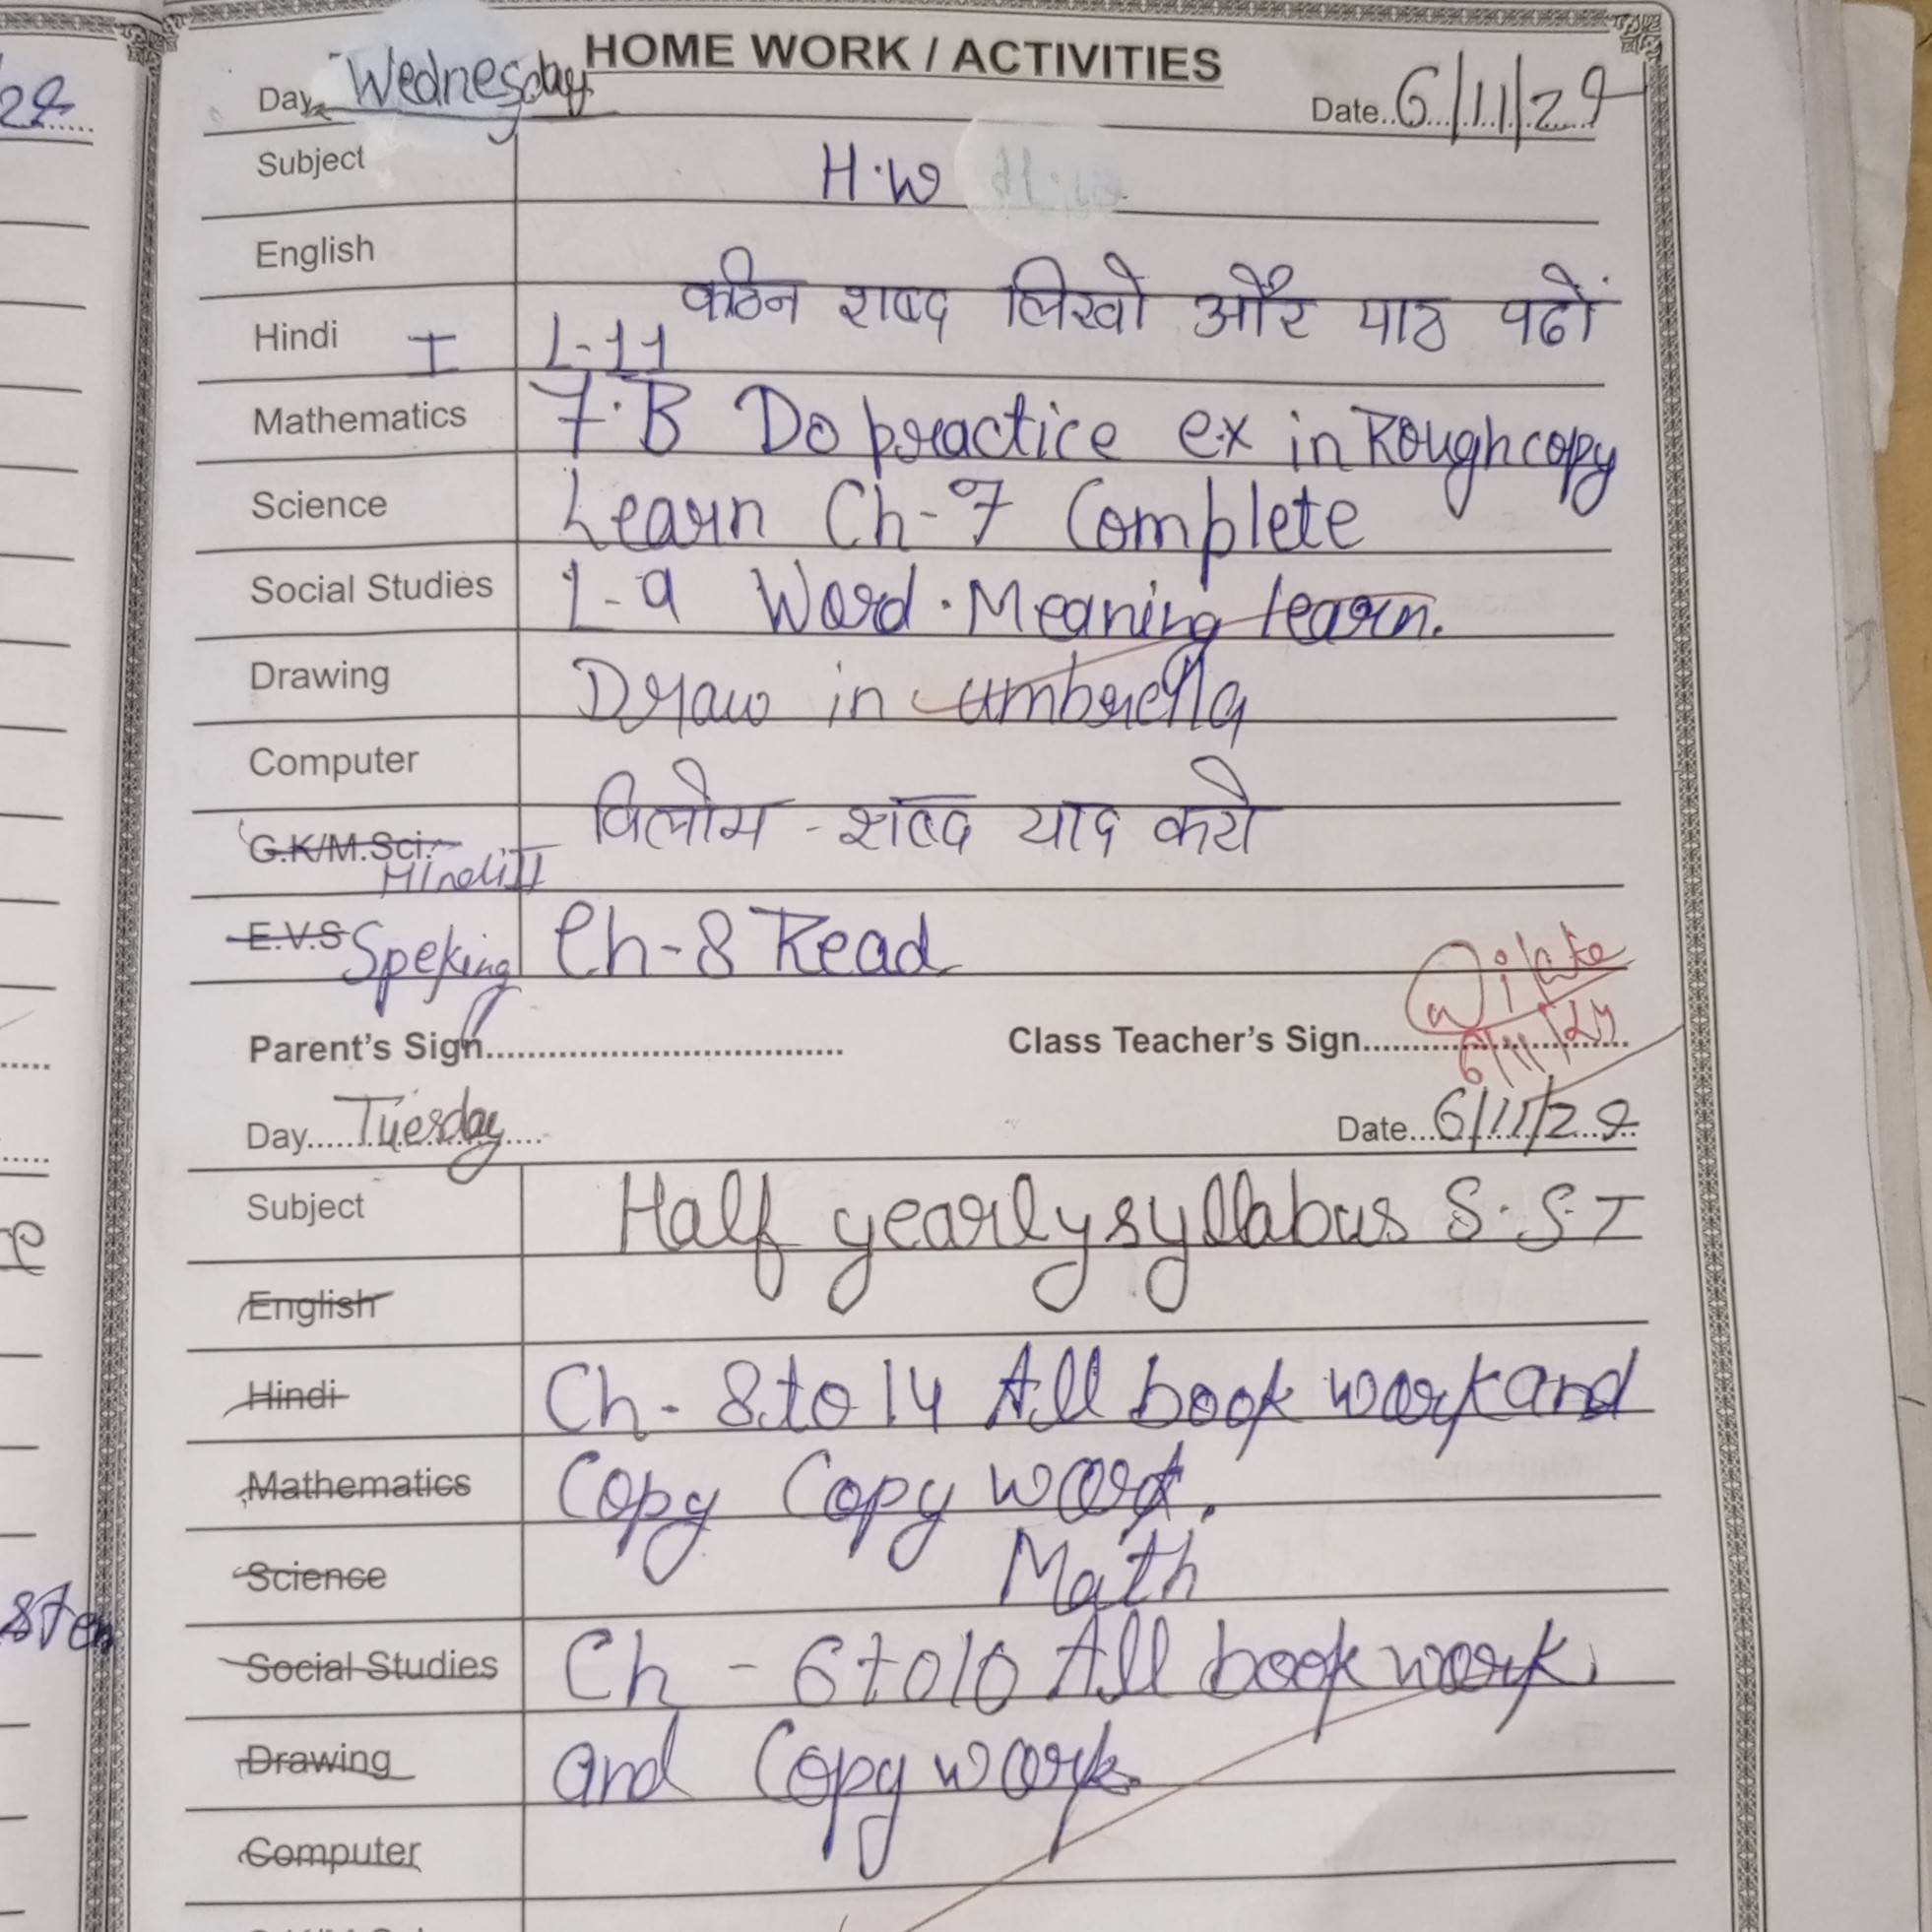 HOME WORK / ACTIVITIES
Day Wednesday Date 6/11/24
Subject H.W
English
Hindi I L-11 कठिन शब्द लिखो और पाठ पढों
Mathematics 7.B Do practice ex in Rough copy
Science Learn Ch-7 Complete
Social Studies L-9 Word.Meaning learn.
Drawing Draw in umbrella
Computer
G.K/M.Sci. Hindi II विलोम - शब्द याद करो
E.V.S Speking Ch-8 Read
Parent's Sign Class Teacher's Sign
6/11/24
Day Tuesday Date 6/11/24
Subject Half yearly syllabus S.S.T
English
Hindi Ch-8 to 14 All book work and
Mathematics Copy Copy work.
Science Math
Social Studies Ch-6 to 10 All book work.
Drawing and Copy work.
Computer